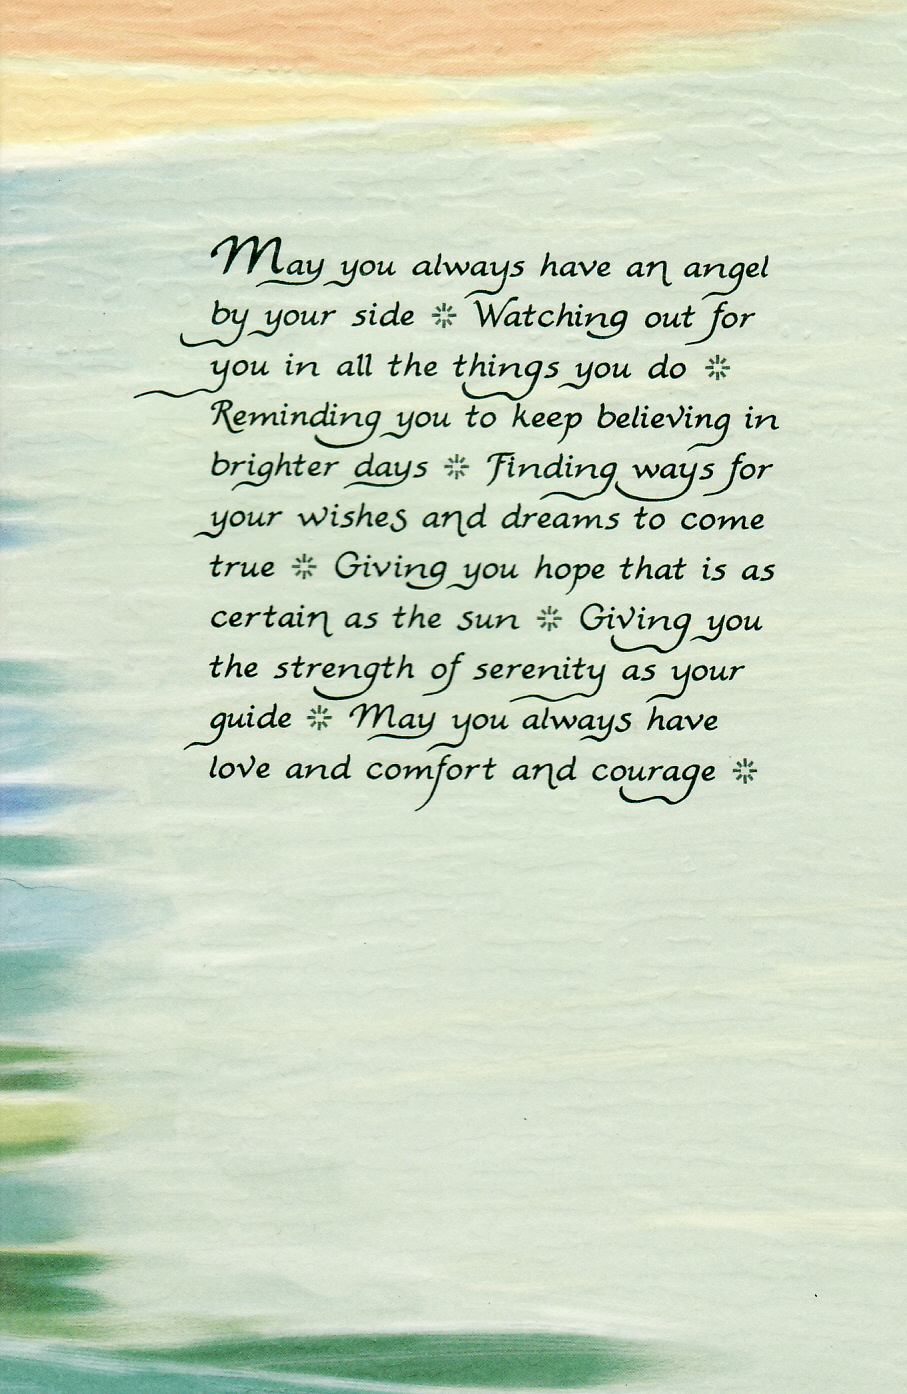 May you always have an angel
by your side ❊ Watching out for
you in all the things you do ❊
Reminding you to keep believing in
brighter days ❊ Finding ways for
your wishes and dreams to come
true ❊ Giving you hope that is as
certain as the sun ❊ Giving you
the strength of serenity as your
guide ❊ May you always have
love and comfort and courage ❊